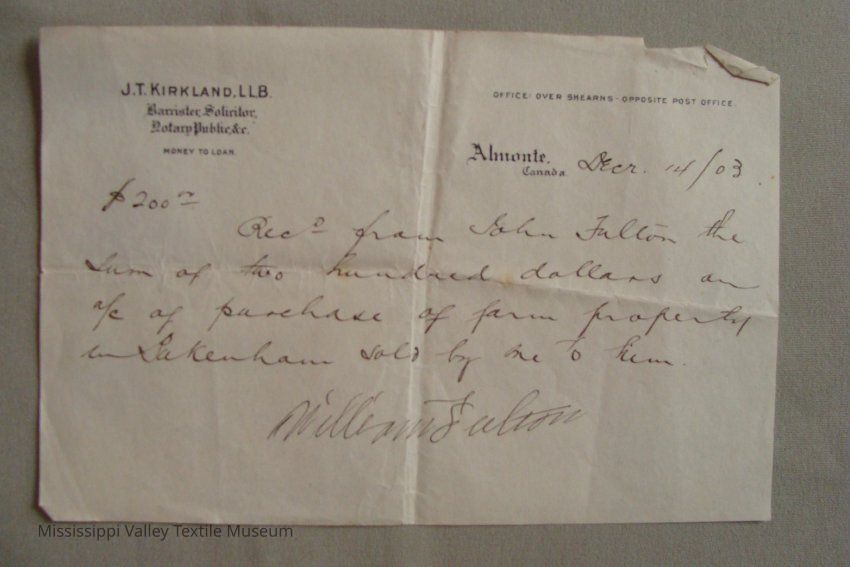 J.T. KIRKLAND, LLB.
Barrister, Solicitor,
Notary Public, &c.
MONEY TO LOAN.
OFFICE: OVER SHEARNS - OPPOSITE POST OFFICE.
Almonte,
Canada
Decr. 14/03.
$200⁰⁰
Recd from John Fulton the
sum of two hundred dollars on
a/c of purchase of farm property
in Pakenham sold by me to him.
William Fulton
Mississippi Valley Textile Museum